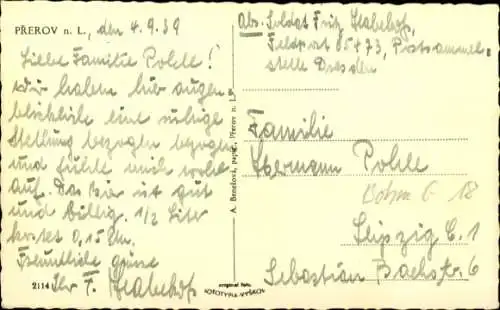 PŘEROV n. L., den 4.9.39
Liebe Familie Pohle!
Wir haben hier augen-
blicklich eine ruhige
Stellung bezogen bezogen
und fühle mich wohl
auf. Das Bier ist gut
und billig. 1/2 Liter
kostet 0,15 Dm.
Freundliche grüße
Ihr F. Habehof
2114
A. Benešová, papír., Přerov n. L.
Abs. Soldat Fritz Habehof,
Feldpost 05473, Postsammel-
stelle Dresden
Familie
Hermann Pohle
Böhm G 18
Leipzig C.1
Sebastian Bachstr 6
original foto
FOTOTYPIA-VYŠKOV